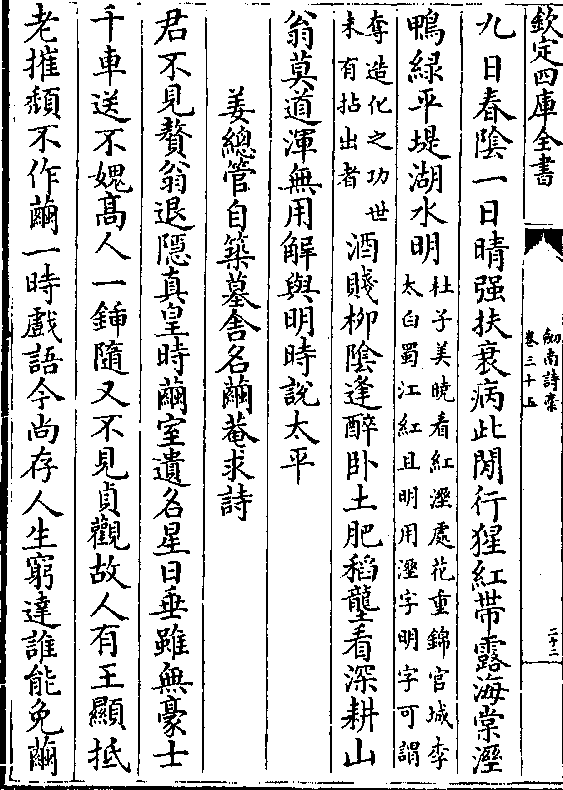 欽定四庫全書
劍南詩藁
卷三十五
二十二
九日春陰一日晴强扶衰病此閒行猩紅帶露海棠溼
鴨緑平堤湖水明
杜子美曉看紅溼處花重錦官城李
太白蜀江紅且明用溼字明字可謂
奪造化之功世
未有拈出者
酒賤柳陰逢醉卧土肥稻壟看深耕山
翁莫道渾無用解與明時說太平
姜總管自築墓舍名繭菴求詩
君不見贅翁退隱真皇時繭室遺名星日垂雖無豪士
千車送不媿髙人一鍤隨又不見貞觀故人有王顯抵
老摧頽不作繭一時戲語今尚存人生窮達誰能免繭